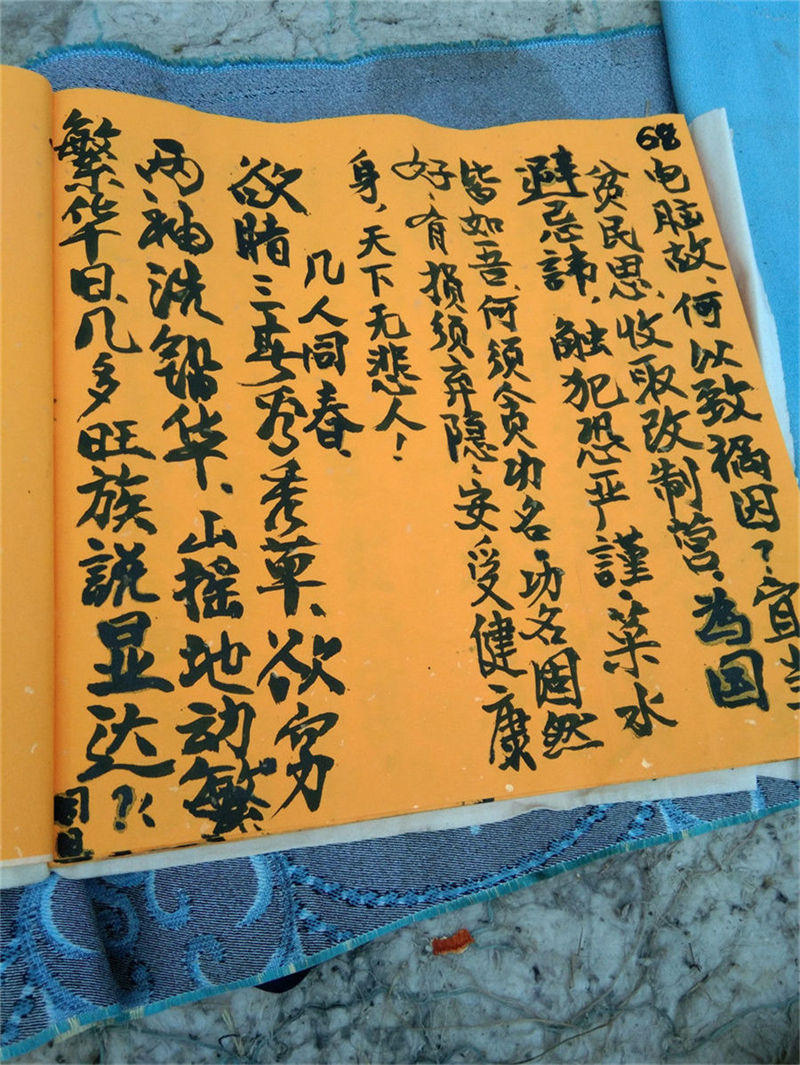 68
电脑故、何以致祸因？宜当
贫民思、收取改制营、为国
避忌諱、触犯恐严谨、菜水
皆如吾、何须贪功名、功名固然
好、有损须弃隐、安受健康
身、天下无悲人！
几人同春、
欲睹三春秀秀草、欲穷
两袖洗铅华、山摇地动繁
繁华日、几多旺族説显达